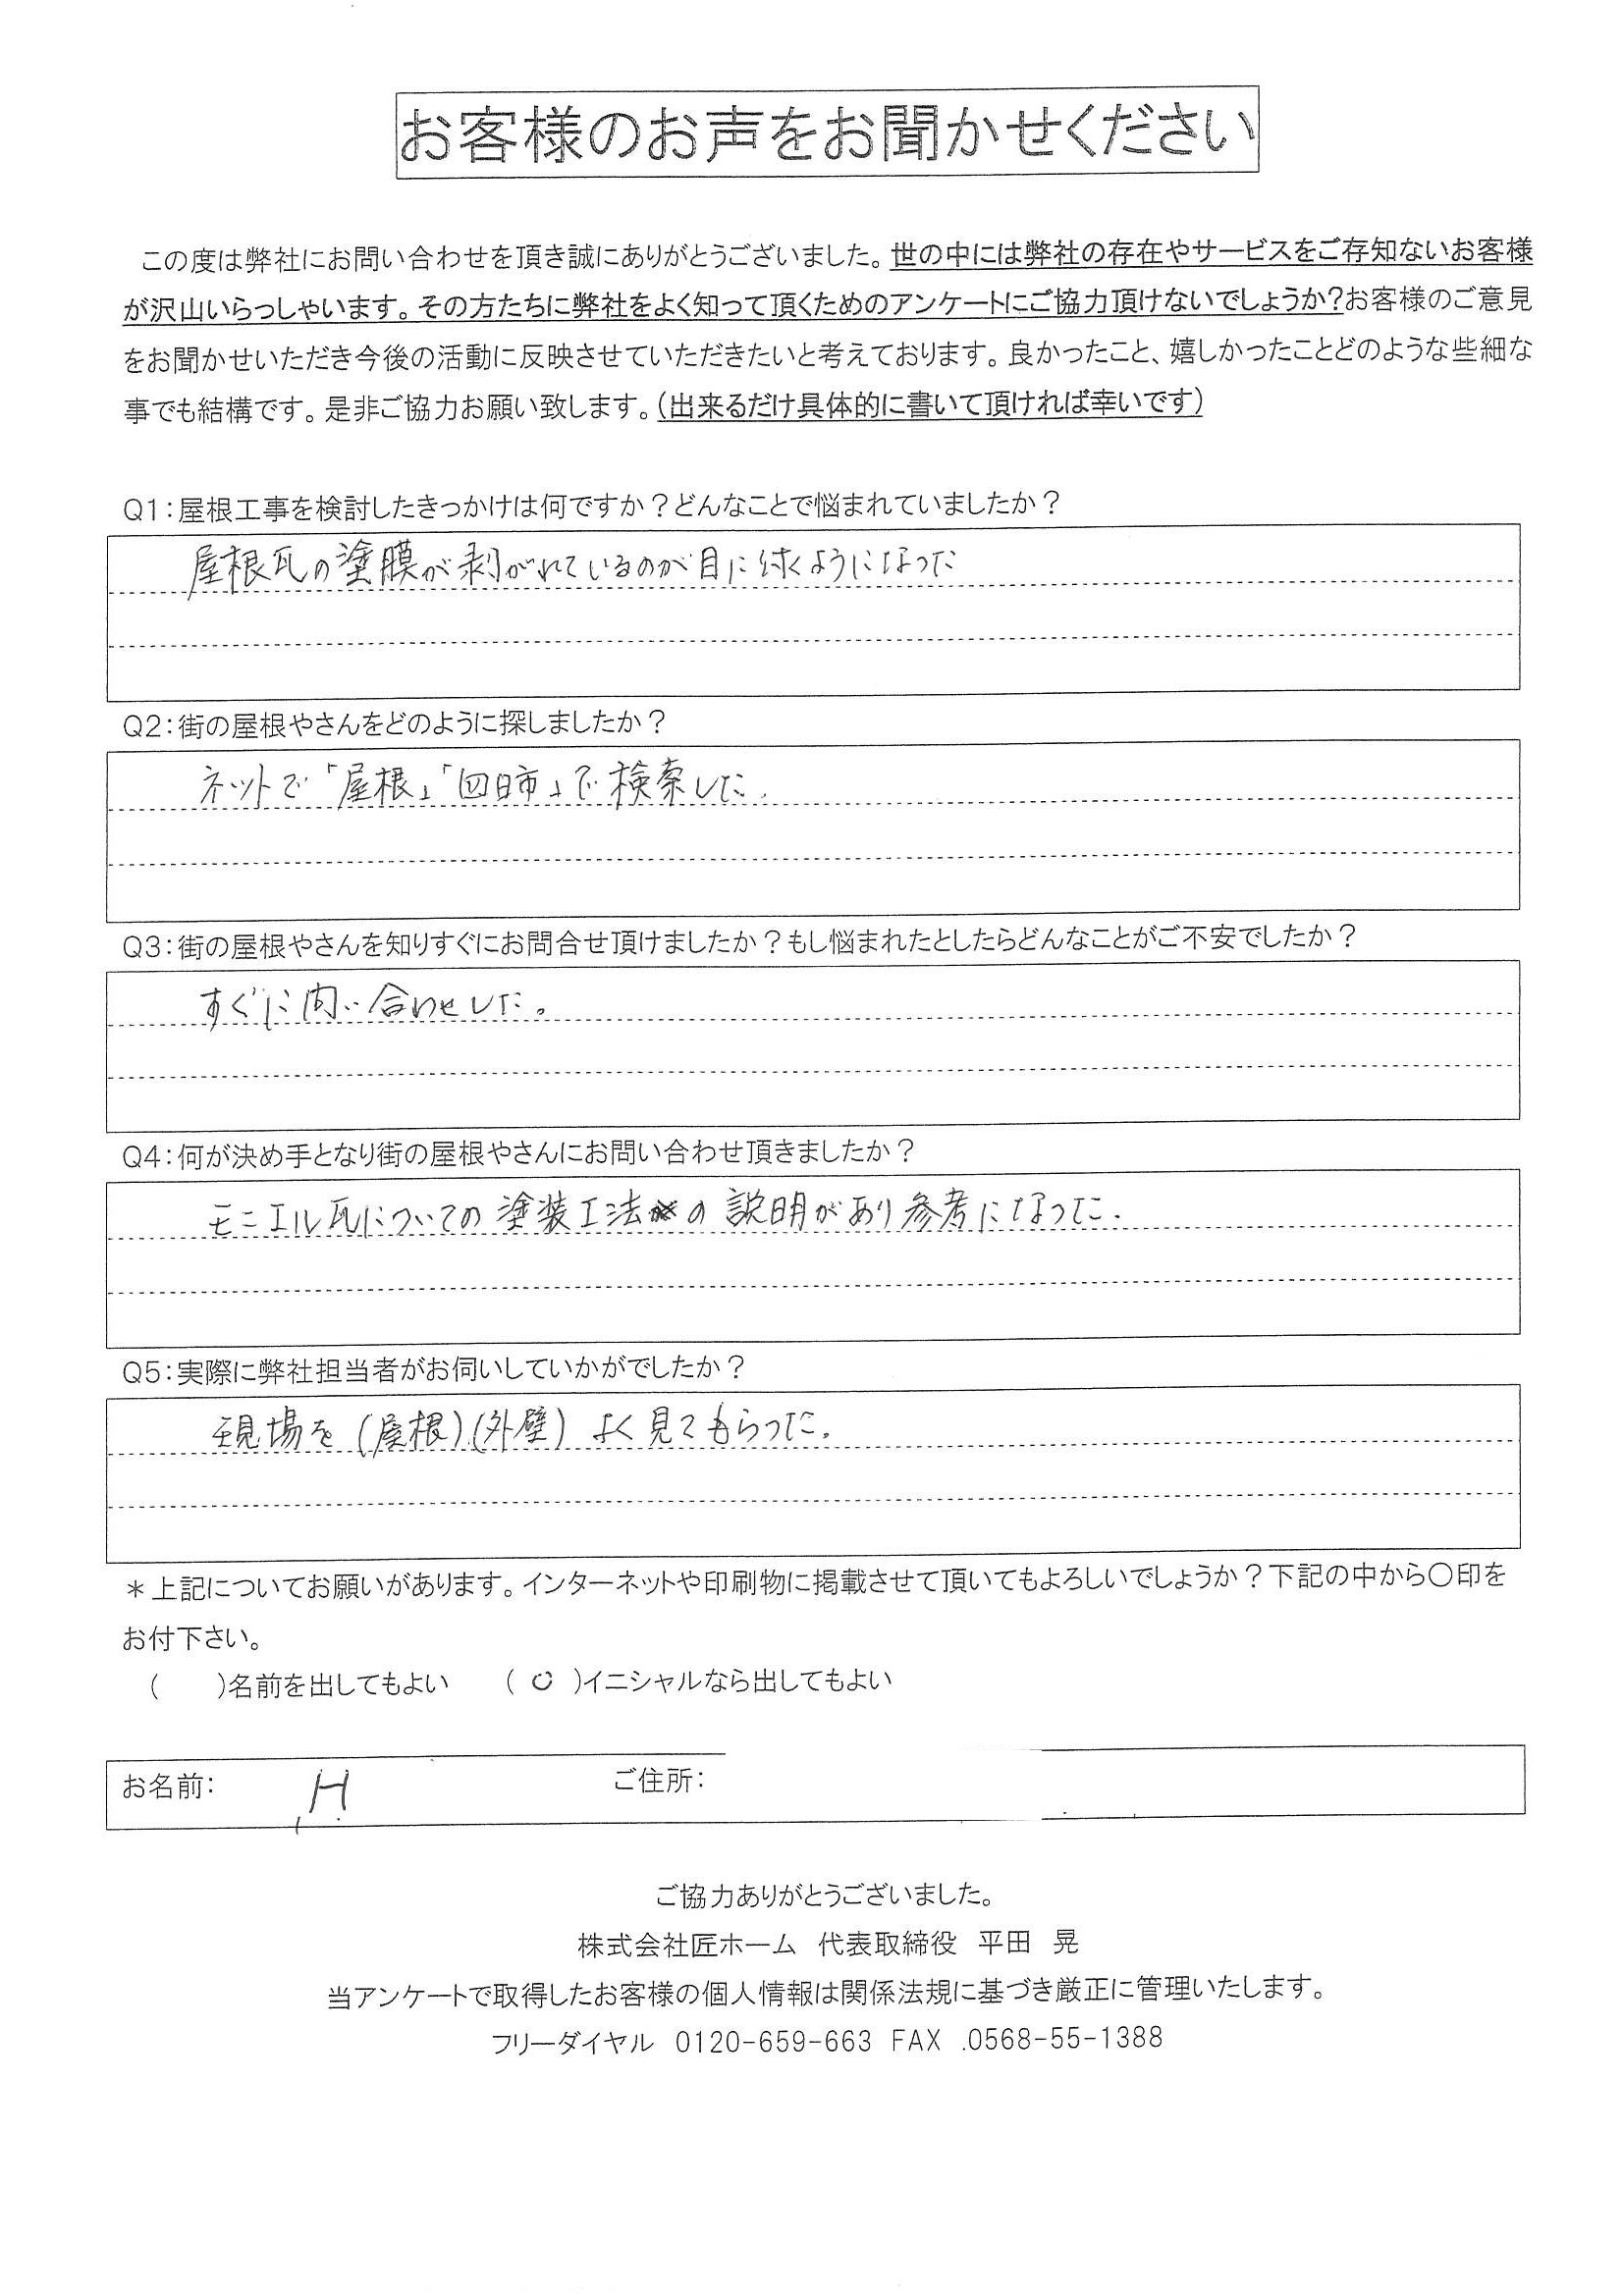 お客様のお声をお聞かせください
この度は弊社にお問い合わせを頂き誠にありがとうございました。世の中には弊社の存在やサービスをご存知ないお客様
が沢山いらっしゃいます。その方たちに弊社をよく知って頂くためのアンケートにご協力頂けないでしょうか?お客様のご意見
をお聞かせいただき今後の活動に反映させていただきたいと考えております。良かったこと、嬉しかったことどのような些細な
事でも結構です。是非ご協力お願い致します。(出来るだけ具体的に書いて頂ければ幸いです)
Q1:屋根工事を検討したきっかけは何ですか?どんなことで悩まれていましたか?
屋根瓦の塗膜が剥がれているのが目に付くようになった
Q2:街の屋根やさんをどのように探しましたか?
ネットで「屋根」「四日市」で検索した.
Q3:街の屋根やさんを知りすぐにお問合せ頂けましたか?もし悩まれたとしたらどんなことがご不安でしたか?
すぐに問い合わせした。
Q4:何が決め手となり街の屋根やさんにお問い合わせ頂きましたか?
モニエル瓦についての塗装工法の説明があり参考になった.
Q5:実際に弊社担当者がお伺いしていかがでしたか?
現場を(屋根)(外壁)よく見てもらった.
*上記についてお願いがあります。インターネットや印刷物に掲載させて頂いてもよろしいでしょうか?下記の中から〇印を
お付下さい。
(　　)名前を出してもよい　(〇)イニシャルなら出してもよい
お名前: H　ご住所:
ご協力ありがとうございました。
株式会社匠ホーム　代表取締役　平田　晃
当アンケートで取得したお客様の個人情報は関係法規に基づき厳正に管理いたします。
フリーダイヤル　0120-659-663　FAX　.0568-55-1388